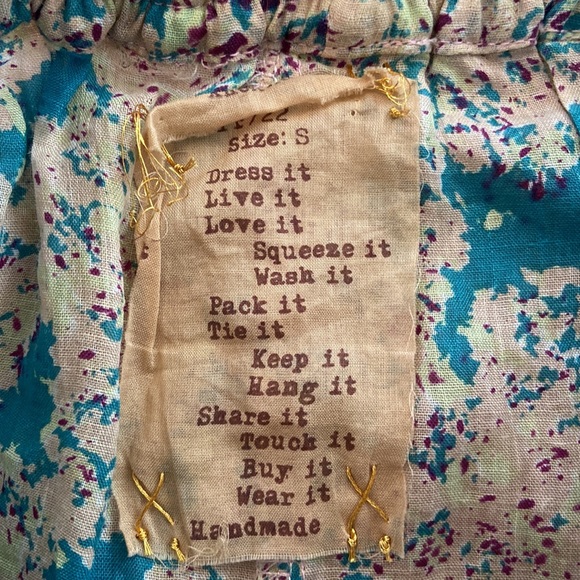 size: S
Dress it
Live it
Love it
Squeeze it
Wash it
Pack it
Tie it
Keep it
Hang it
Share it
Touch it
Buy it
Wear it
Handmade